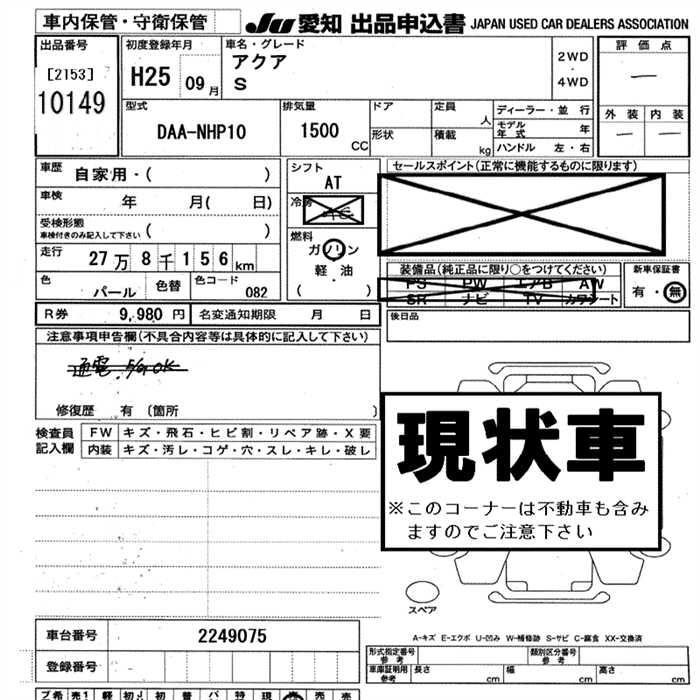 車内保管・守衛保管
JU 愛知 出品申込書 JAPAN USED CAR DEALERS ASSOCIATION
出品番号
[2153]
10149
初度登録年月
H25 09月
車名・グレード
アクア
S
2WD
・
4WD
評価点
―
外装 内装
― ―
型式
DAA-NHP10
排気量
1500
CC
ドア
形状
定員
人
積載
kg
ディーラー・並行
モデル年式 年
ハンドル 左・右
車歴
自家用・( )
車検
年 月( 日)
受検形態
車検付きのみ記入して下さい ( )
走行
27万8千156km
色
パール
色替
色コード
082
シフト
AT
冷房
燃料
ガソリン
軽・油
( )
セールスポイント(正常に機能するものに限ります)
装備品(純正品に限り○をつけてください)
PS PW エアB AW
SR ナビ TV カワシート
新車保証書
有・無
後日品
R券 9,980円 名変通知期限 月 日
注意事項申告欄(不具合内容等は具体的に記入して下さい)
修復歴 有 〔箇所 〕
検査員
記入欄
FW キズ・飛石・ヒビ割・リペア跡・X要
内装 キズ・汚レ・コゲ・穴・スレ・キレ・破レ
現状車
※このコーナーは不動車も含み
ますのでご注意下さい
スペア
A-キズ E-エクボ U-凹み W-補修跡 S-サビ C-腐食 XX-交換済
車台番号 2249075
登録番号
形式指定番号
参考
類別区分番号
参考
車庫証明用
参考
長さ cm 幅 cm 高さ cm